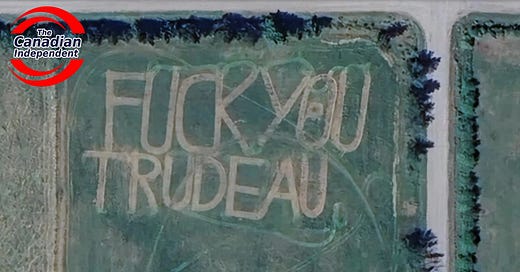 The
Canadian
Independent
FUCK YOU
TRUDEAU